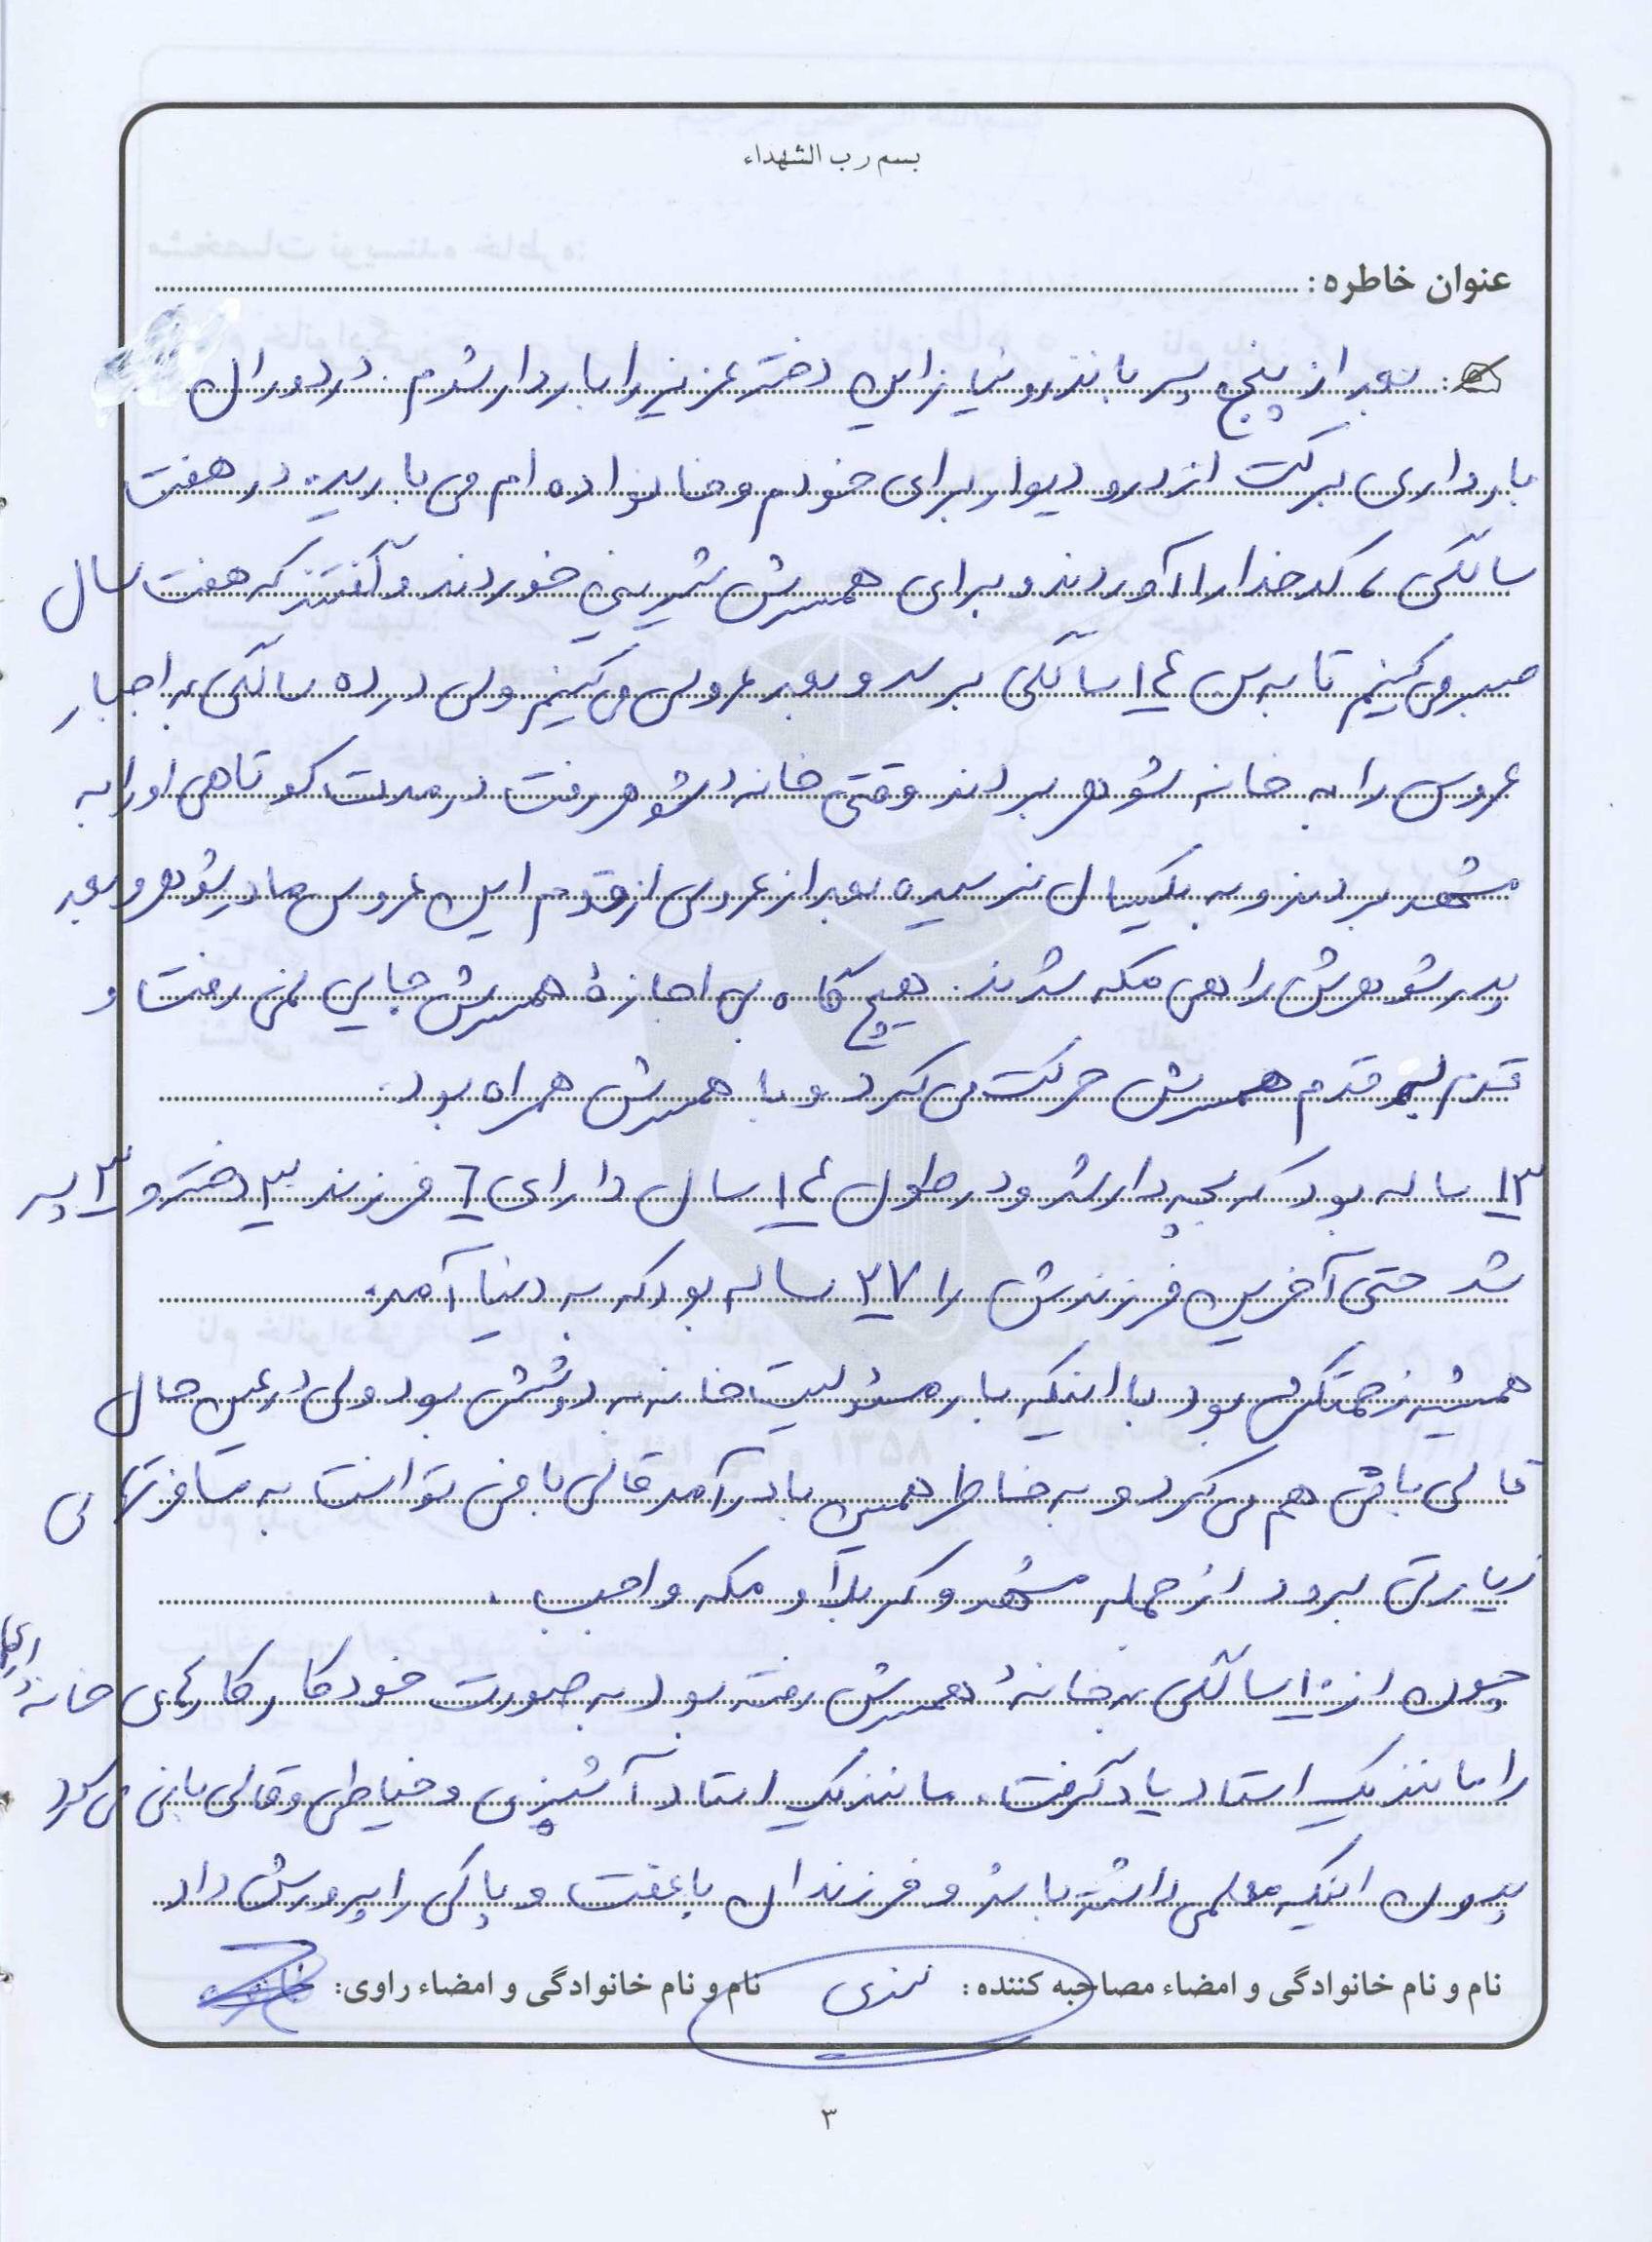 بسم رب الشهداء
عنوان خاطره:
بعد از پنج پسر با نذر و نیاز این دختر عزیز را باردار شدم. در دوران
بارداری برکت از در و دیوار برای خودم و خانواده ام می بارید. در هفت
سالگی، کدخدا را آوردند و برای همسرش شیرینی خوردند و گفتند که هفت سال
صبر می کنیم تا به سن ۱۴ سالگی برسد و بعد عروس می کنیم ولی در ده سالگی به اجبار
عروس را به خانه شوهر بردند وقتی خانهٔ شوهر رفت در مدت کوتاهی او را به
مشهد بردند و به یکسال نرسیده بعد از عروسی از قدم این عروس مادر شوهر و بعد
پدر شوهرش راهی مکه شدند. هیچ گاه بی اجازهٔ همسرش جایی نمی رفت و
قدم به قدم همسرش حرکت می کرد و با همسرش همراه بود.
۱۳ ساله بود که بچه دار شد و در طول ۱۴ سال دارای ۶ فرزند ۳ دختر و ۳ پسر
شد حتی آخرین فرزندش را ۲۷ ساله بود که به دنیا آمد.
همیشه زحمتکش بود با اینکه بار مسئولیت خانه به دوشش بود ولی در عین حال
قالی بافی هم می کرد و به خاطر همین با درآمد قالی بافی توانست به مسافرتهای
زیارتی برود از جمله مشهد و کربلا و مکه واجب.
چون از ۱۰ سالگی به خانهٔ همسرش رفته بود به صورت خودکار کارهای خانه
را مانند یک استاد یاد گرفت. مانند یک استاد آشپزی و خیاطی و قالی بافی می کرد
بدون اینکه معلمی داشته باشد و فرزندان با عفت و پاکی را پرورش داد
نام و نام خانوادگی و امضاء مصاحبه کننده: نام و نام خانوادگی و امضاء راوی:
۳